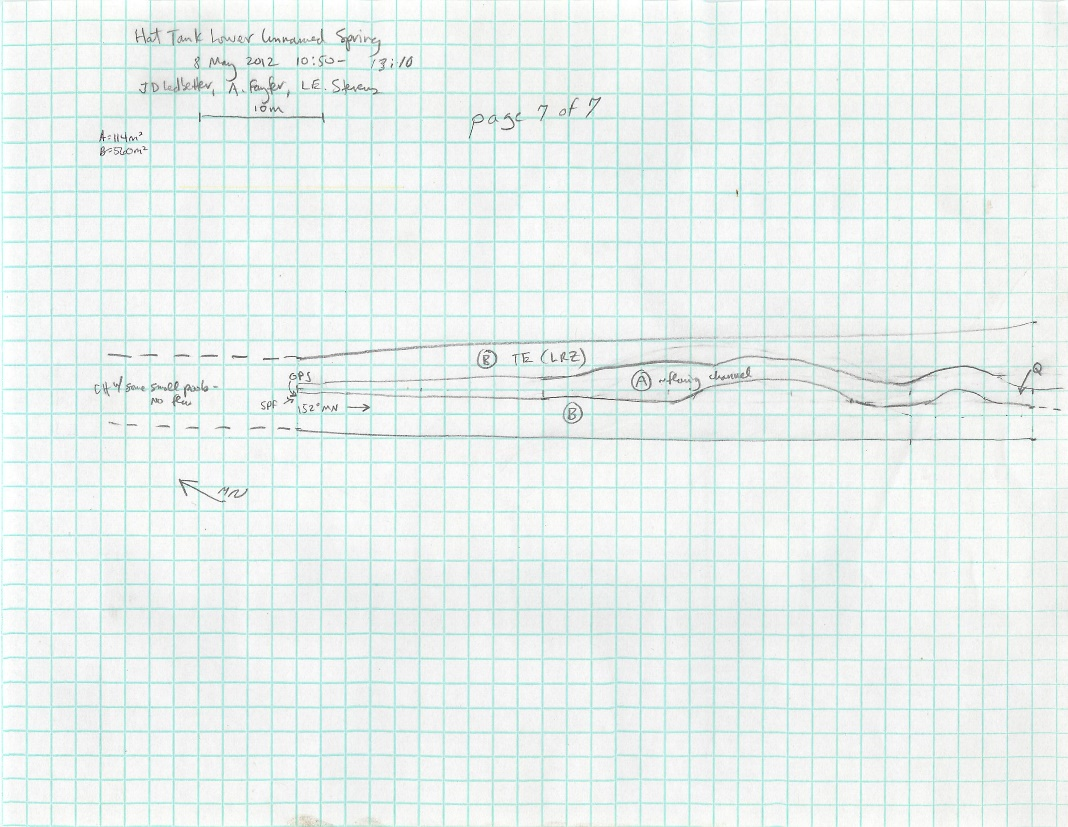 Hat Tank Lower Unnamed Spring
8 May 2012 10:50 - 13:10
JD Ledbetter, A. Fayfer, L.E. Stevens
10m
page 7 of 7
A=114m²
B=560m²
B TE (LRZ)
GPS
A flowing channel
Q
CH w/ some small pools -
No flow
SPF
152° MN →
B
MN